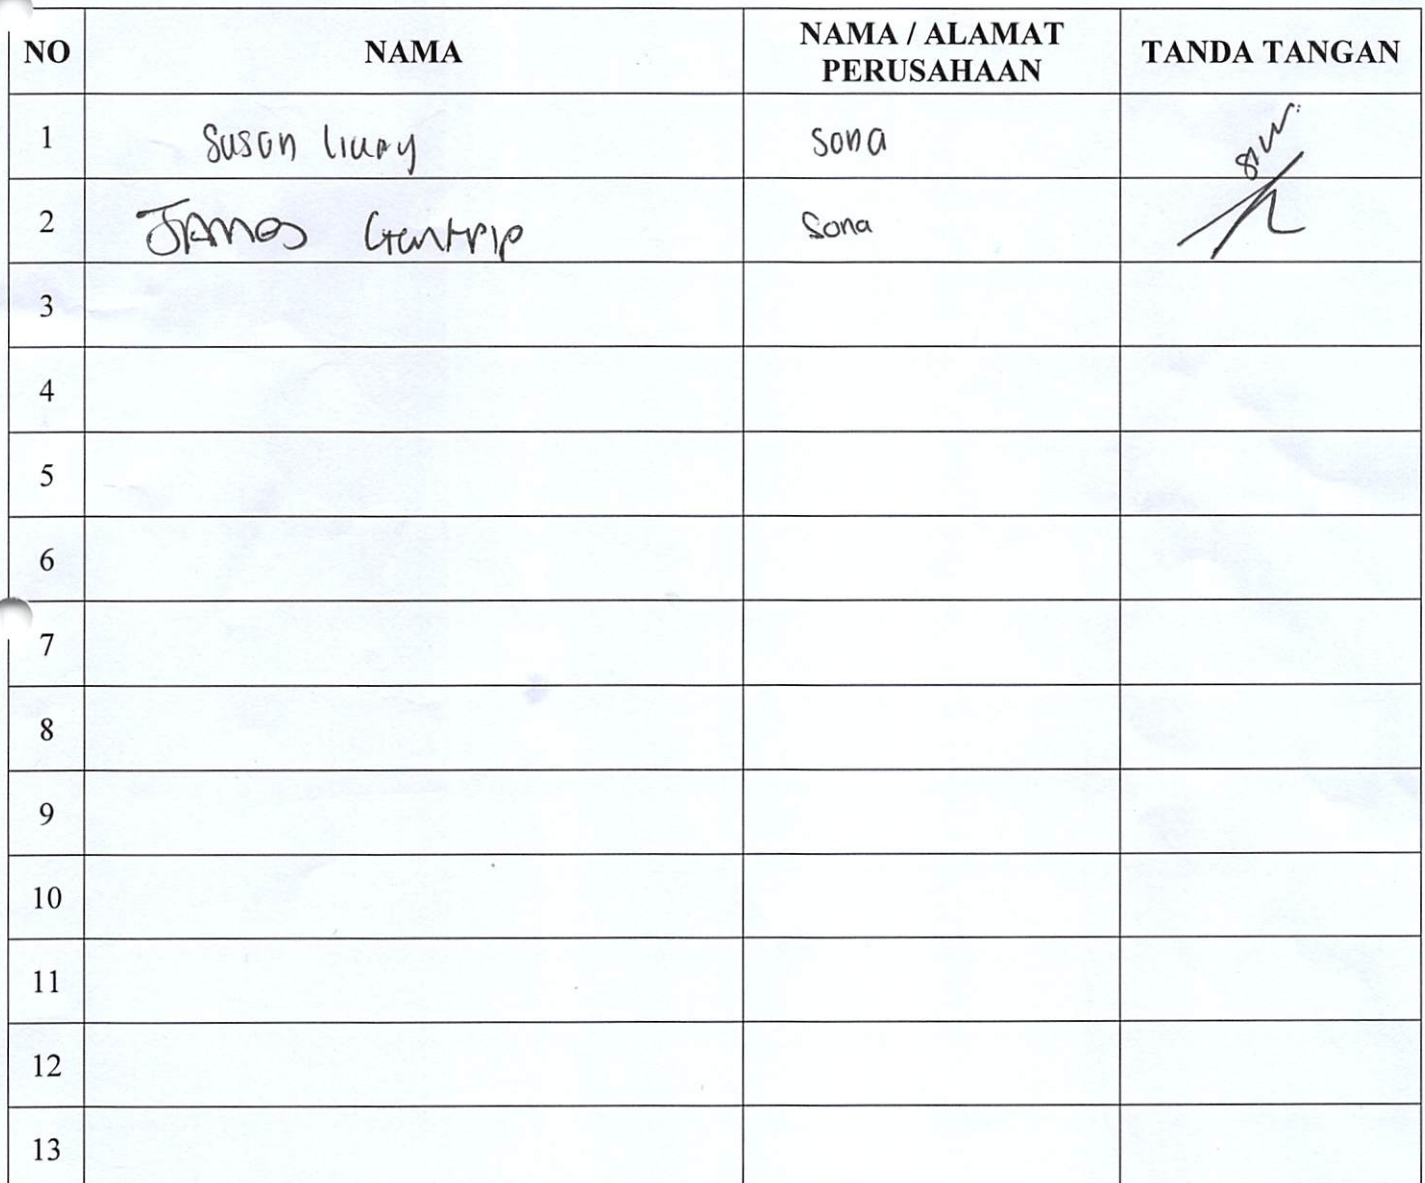 NO NAMA NAMA / ALAMAT PERUSAHAAN TANDA TANGAN
1 Susan Sona
2 James Sona
3
4
5
6
7
8
9
10
11
12
13